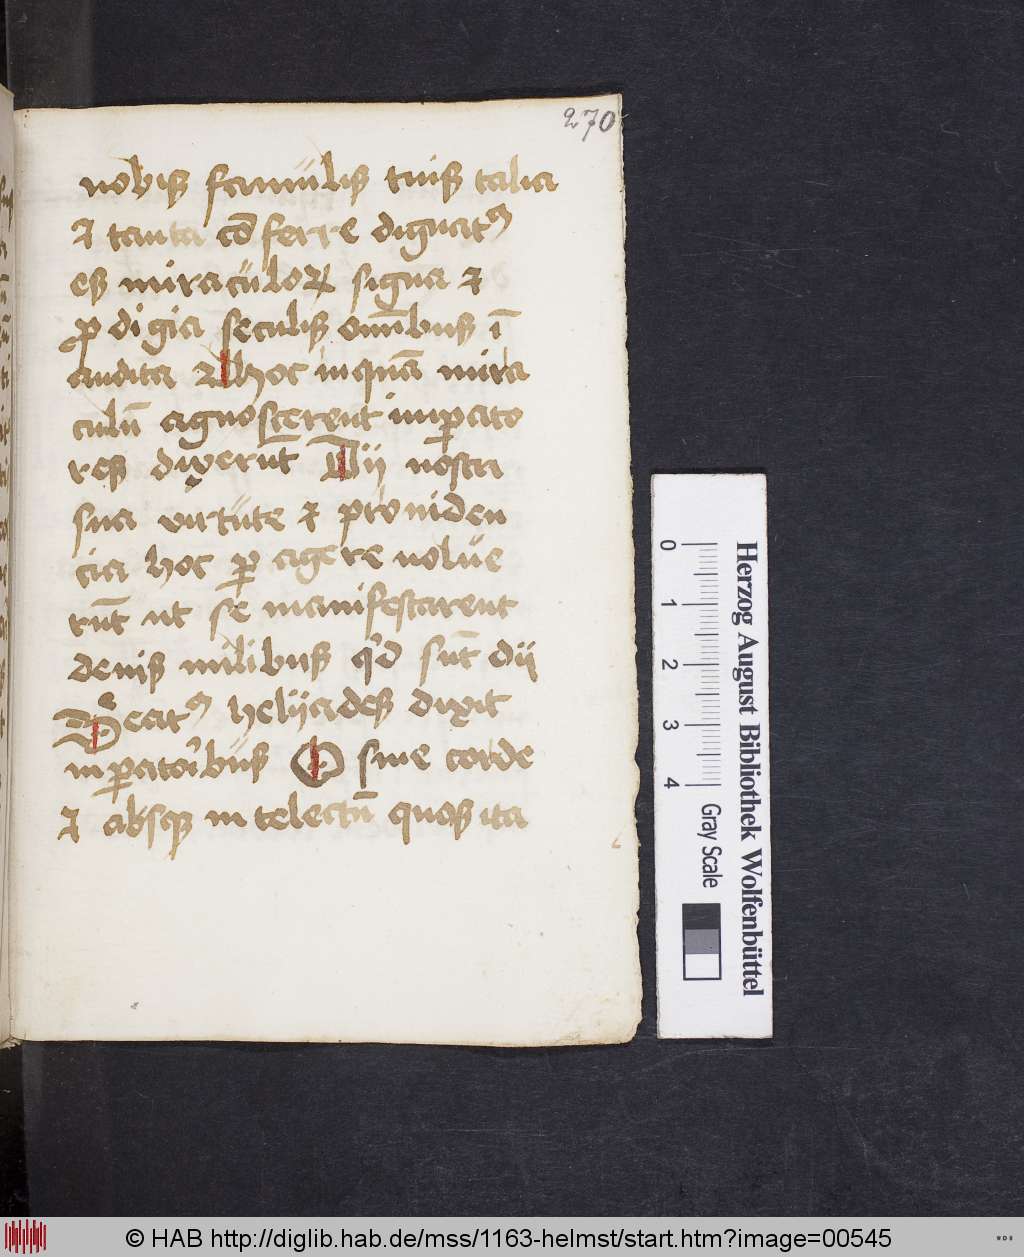 270
nobis famulis tuis talia
et tanta cōferre dignatꝰ
es miraculoꝝ signa et
ꝓdigia seculis omībus ī
audita Ahoc inquā mira
culū agnoscerent impato
res dixerūt Dii nostra
sua virtute et prouiden
cia hoc ꝑ agere uolue
rūt ut se manifestarent
denis milibus qd sūt dii
Beatꝰ heliiades dixit
inꝑatoribus O sine corde
et absqꝫ in telectū quos ita
0 1 2 3 4
Herzog August Bibliothek Wolfenbüttel
Gray Scale
© HAB http://diglib.hab.de/mss/1163-helmst/start.htm?image=00545